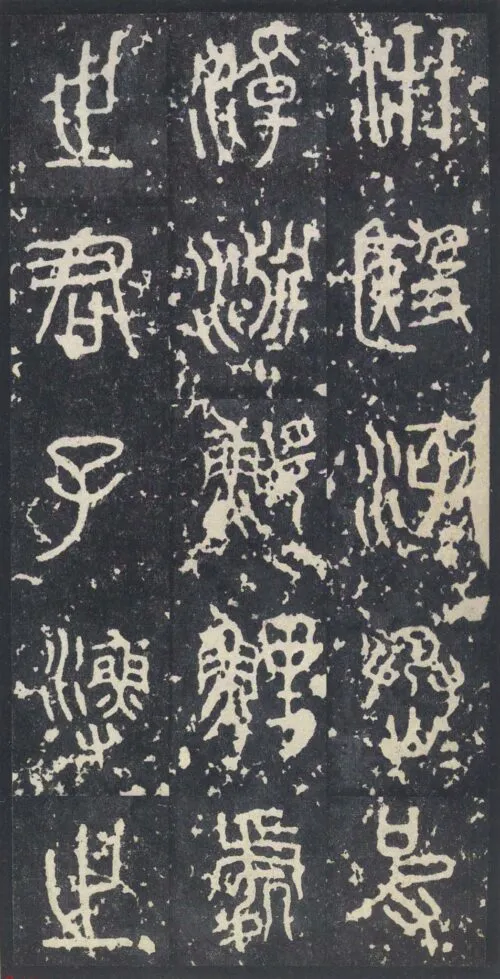 汧殹沔丞皮
淖淵鰋鯉處
之君子漁之